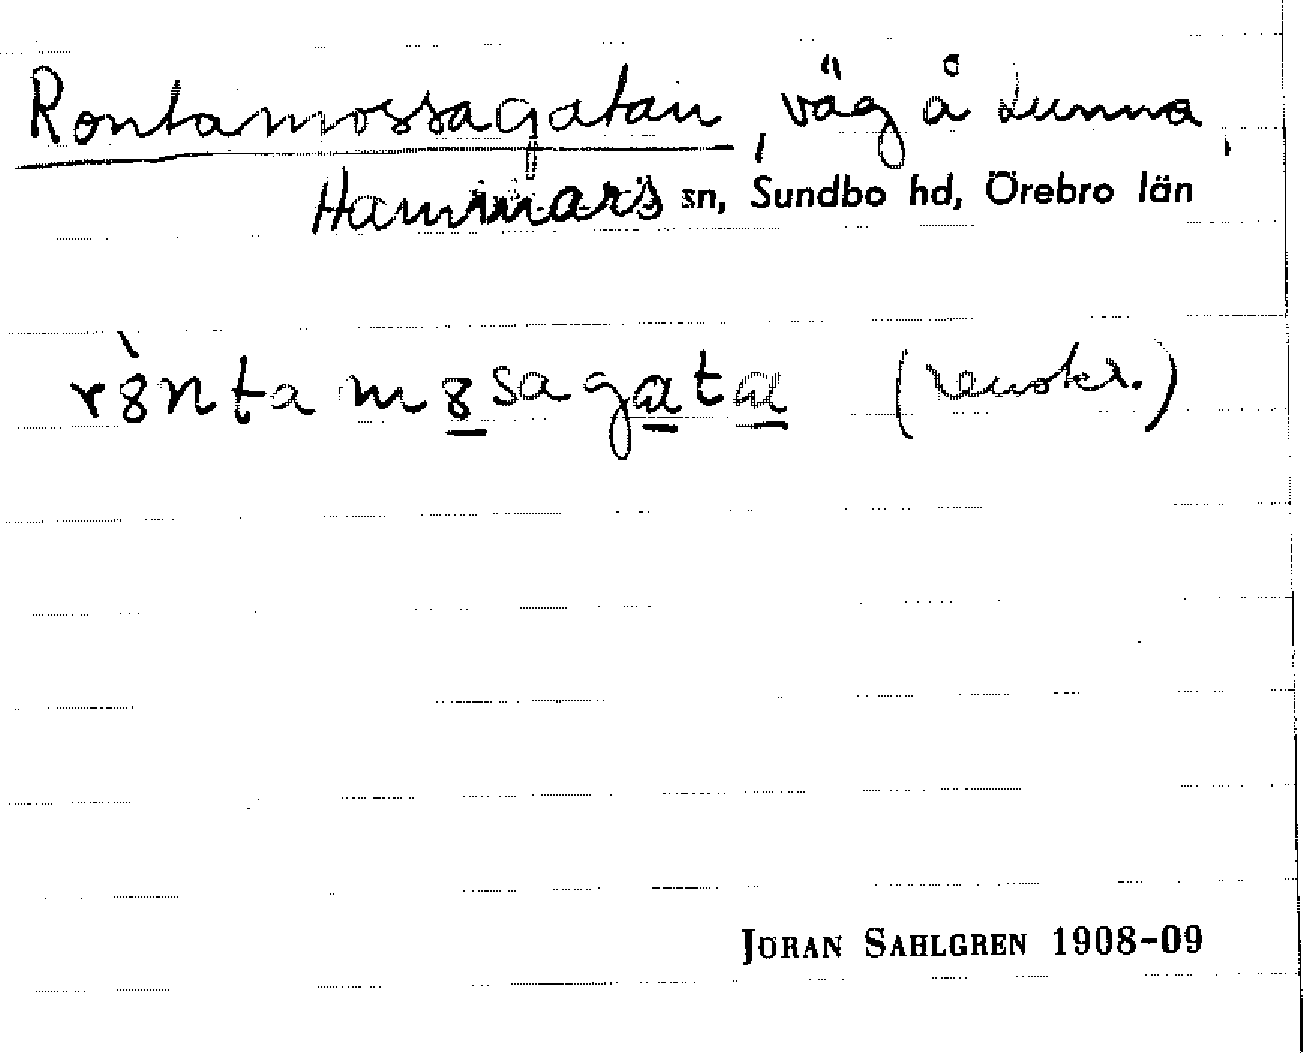 Rontamossagatan, väg å Lunna,
Hammars sn, Sundbo hd, Örebro län
rȣ̀nta mȣsagata (renskr.)
JÖRAN SAHLGREN 1908-09